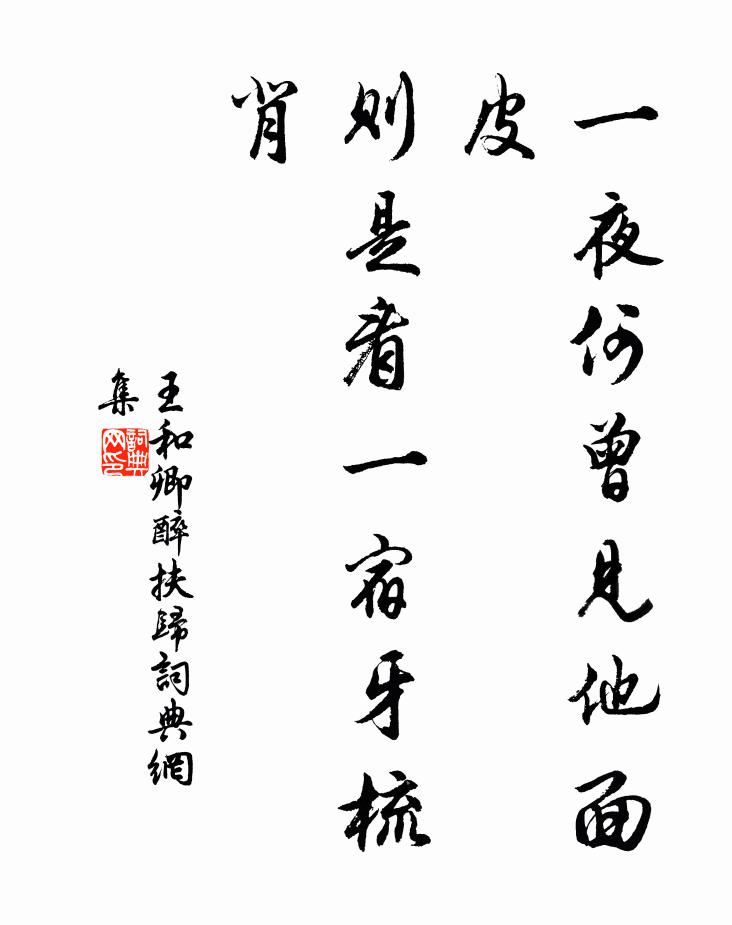 一夜何曾見他面
皮
則是看一宿牙梳
背
王和卿醉扶歸詞典網
集
詞典
网印